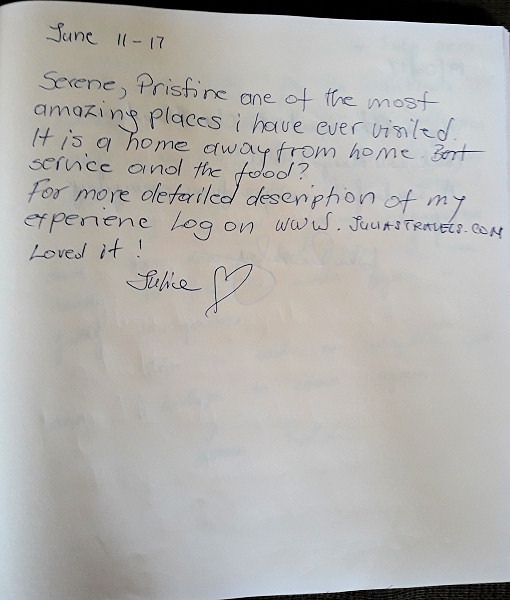 June 11-17
Serene, Pristine one of the most
amazing places i have ever visited.
It is a home away from home. Best
service and the food?
For more detailed description of my
experiene Log on WWW.JULIASTRAVELS.COM
Loved it!
Julia